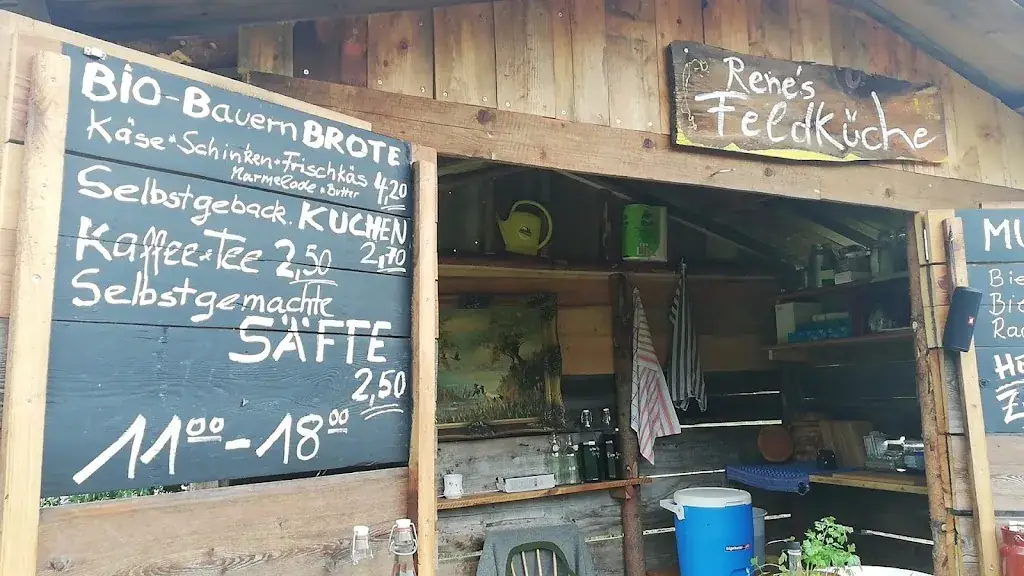 BIO-BauernBROTE
Käse + Schinken + Frischkäs
Marmelade + Butter 4,20
Selbstgeback. KUCHEN
Kaffee + Tee 2,50 2,70
Selbstgemachte
SÄFTE
2,50
11⁰⁰-18⁰⁰
Rene's
Feldküche